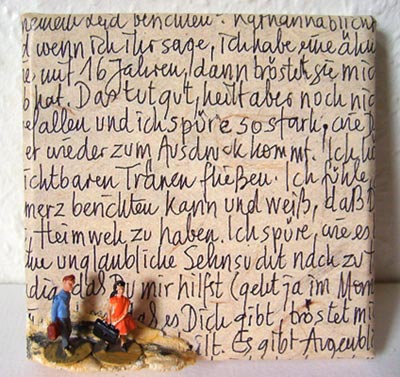 Leid berichten. Karhanna blich
d wenn ich ihr sage, ich habe eine ähn
e mit 16 Jahren, dann tröstet sie mic
b hat. Das tut gut, heilt aber noch nic
efallen und ich spüre so stark, wie D
er wieder zum Ausdruck kommt. Ich
ichtbaren Tränen fließen. Ich fühle
merz berichten kann und weiß, daß D
Heimweh zu haben. Ich spüre, wie es
unglaubliche Sehnsucht nach zu
daß Du mir hilfst (geht ja im Mom
es Dich gibt, tröstet mi
Es gibt Augenbli